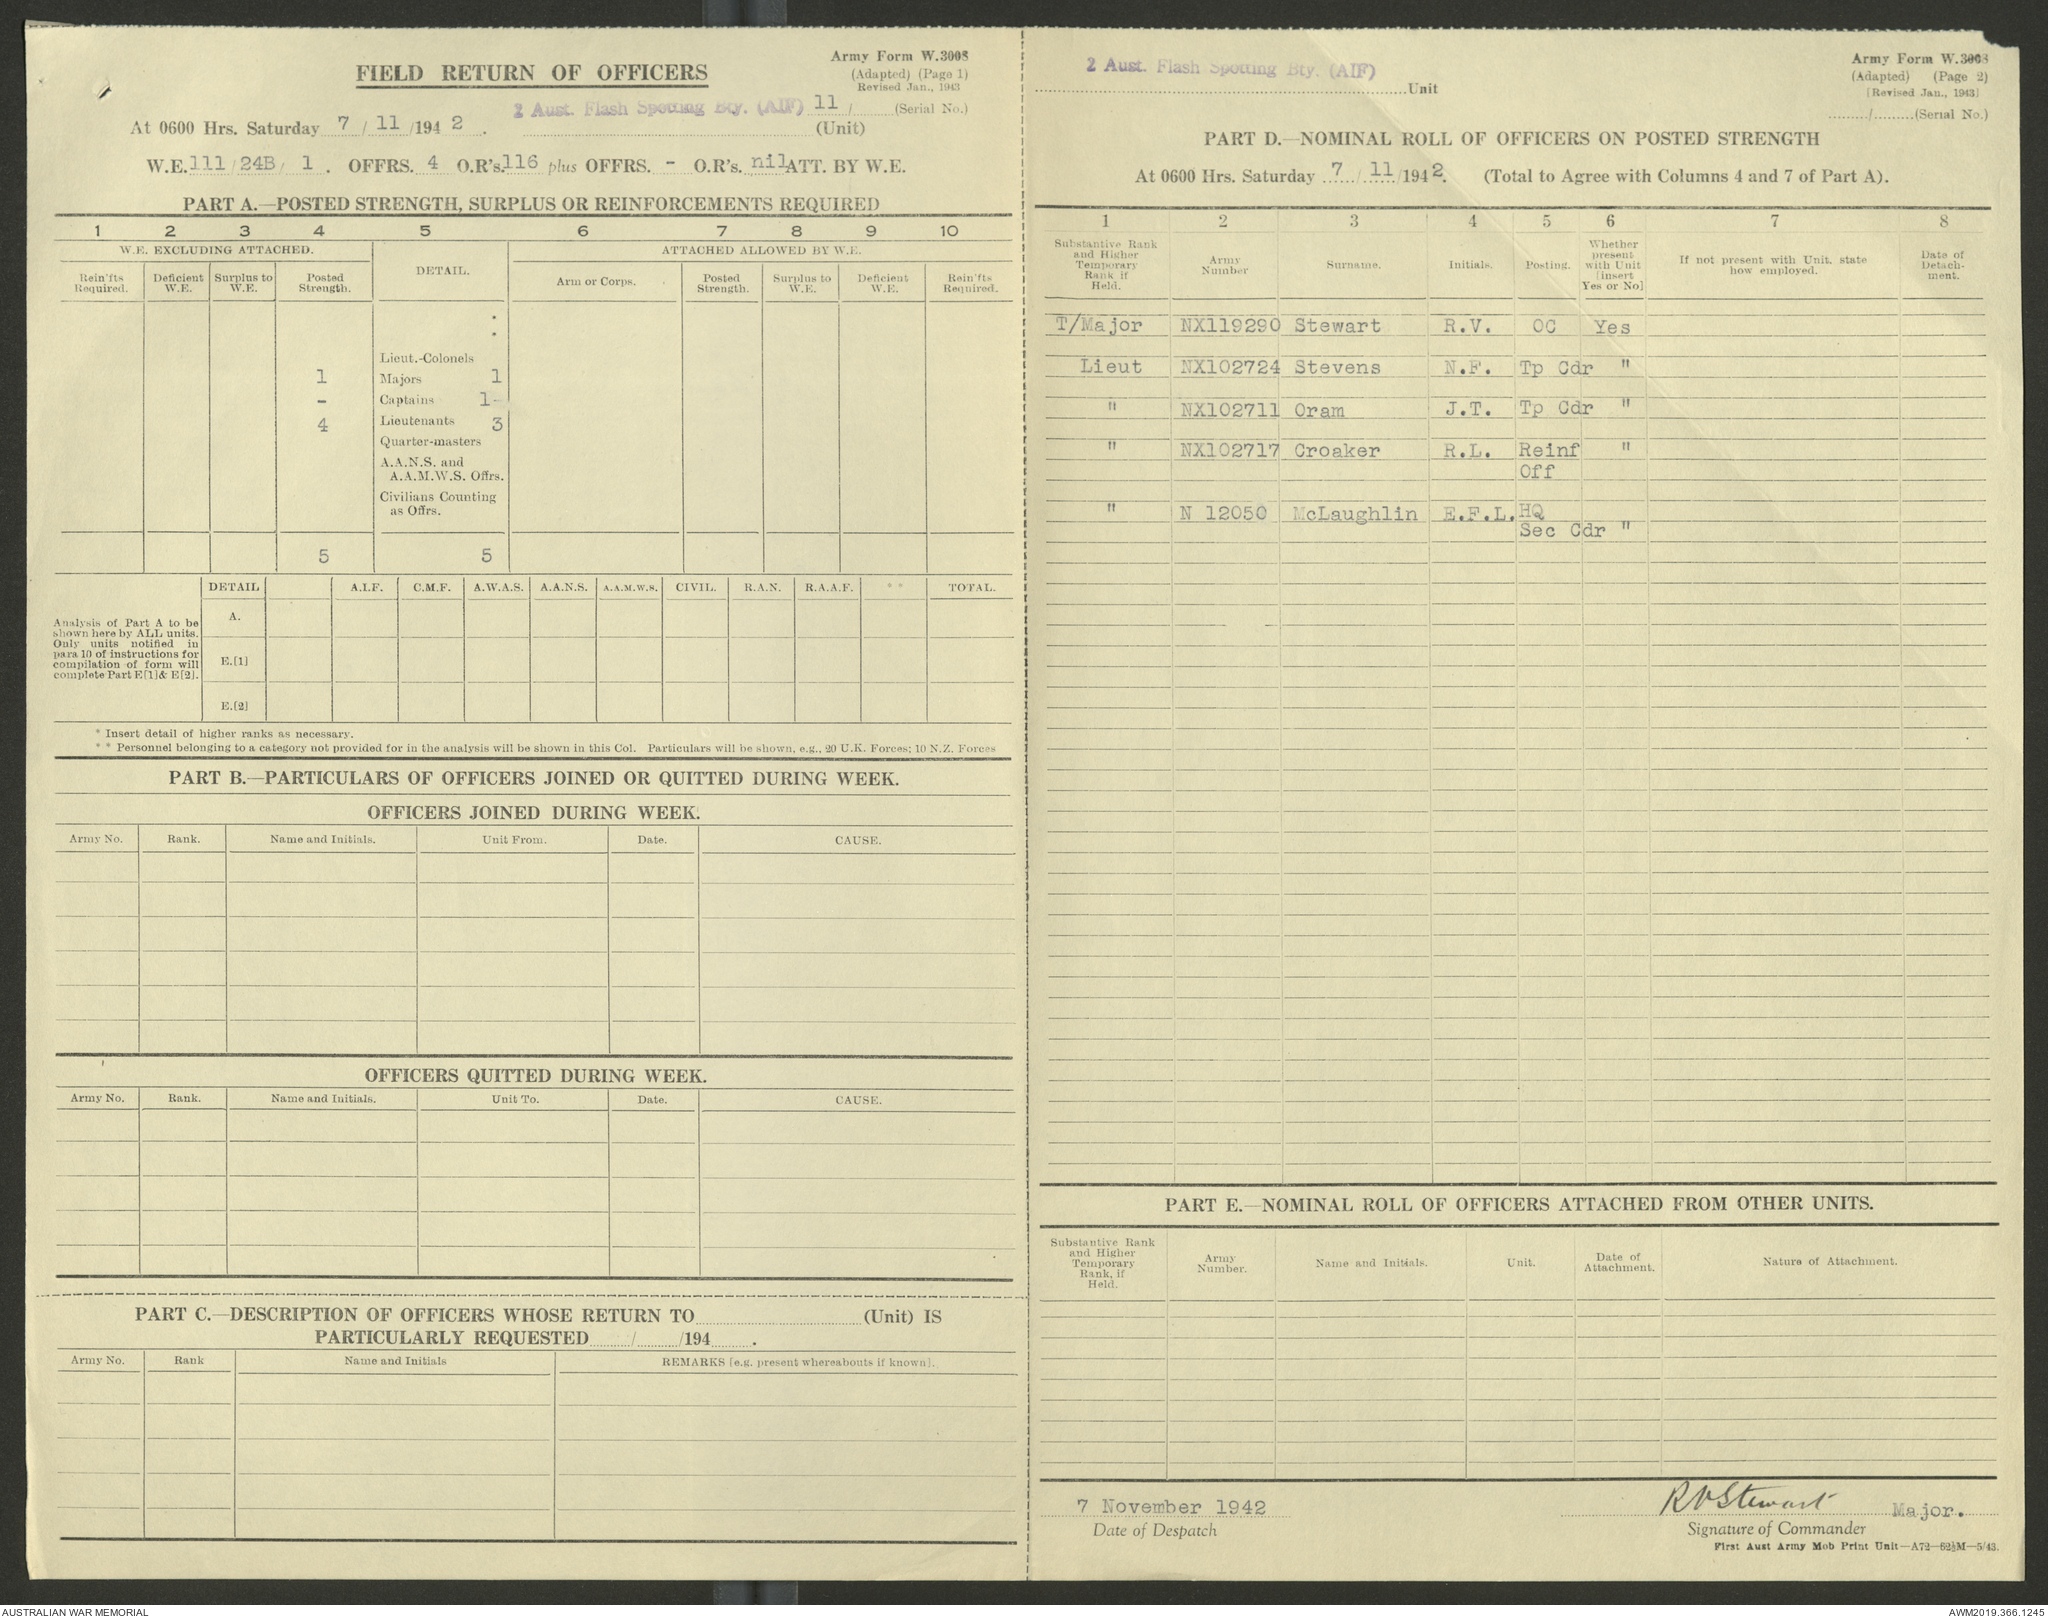 FIELD RETURN OF OFFICERS
Army Form W.3008
(Adapted) (Page 1)
Revised Jan., 1943
2 Aust. Flash Spotting Bty. (AIF) 11 / (Serial No.)
At 0600 Hrs. Saturday 7 / 11 /194 2 . (Unit)
W.E. 111/ 24B/ 1 . OFFRS. 4 O.R's. 116 plus OFFRS. - O.R's. nil ATT. BY W.E.
PART A.—POSTED STRENGTH, SURPLUS OR REINFORCEMENTS REQUIRED
1 2 3 4 5 6 7 8 9 10
W.E. EXCLUDING ATTACHED. DETAIL. ATTACHED ALLOWED BY W.E.
Rein'fts Required. Deficient W.E. Surplus to W.E. Posted Strength. Arm or Corps. Posted Strength. Surplus to W.E. Deficient W.E. Rein'fts Required.
Lieut.-Colonels
1 Majors 1
- Captains 1-
4 Lieutenants 3
Quarter-masters
A.A.N.S. and
A.A.M.W.S. Offrs.
Civilians Counting
as Offrs.
5 5
DETAIL A.I.F. C.M.F. A.W.A.S. A.A.N.S. A.A.M.W.S. CIVIL. R.A.N. R.A.A.F. * * TOTAL.
Analysis of Part A to be
shown here by ALL units.
Only units notified in
para 10 of instructions for
compilation of form will
complete Part E[1]& E[2].
A.
E.[1]
E.[2]
* Insert detail of higher ranks as necessary.
* * Personnel belonging to a category not provided for in the analysis will be shown in this Col. Particulars will be shown, e.g., 20 U.K. Forces; 10 N.Z. Forces
PART B.—PARTICULARS OF OFFICERS JOINED OR QUITTED DURING WEEK.
OFFICERS JOINED DURING WEEK.
Army No. Rank. Name and Initials. Unit From. Date. CAUSE.
OFFICERS QUITTED DURING WEEK.
Army No. Rank. Name and Initials. Unit To. Date. CAUSE.
PART C.—DESCRIPTION OF OFFICERS WHOSE RETURN TO (Unit) IS
PARTICULARLY REQUESTED / /194 .
Army No. Rank Name and Initials REMARKS [e.g. present whereabouts if known].
2 Aust. Flash Spotting Bty. (AIF)
Unit
Army Form W.3008
(Adapted) (Page 2)
[Revised Jan., 1943]
/ (Serial No.)
PART D.—NOMINAL ROLL OF OFFICERS ON POSTED STRENGTH
At 0600 Hrs. Saturday 7 / 11 /194 2. (Total to Agree with Columns 4 and 7 of Part A).
1 2 3 4 5 6 7 8
Substantive Rank and Higher Temporary Rank if Held. Army Number Surname. Initials. Posting. Whether present with Unit [insert Yes or No] If not present with Unit. state how employed. Date of Detach-ment.
T/Major NX119290 Stewart R.V. OC Yes
Lieut NX102724 Stevens N.F. Tp Cdr "
" NX102711 Oram J.T. Tp Cdr "
" NX102717 Croaker R.L. Reinf "
Off
" N 12050 McLaughlin E.F.L. HQ
Sec Cdr "
PART E.—NOMINAL ROLL OF OFFICERS ATTACHED FROM OTHER UNITS.
Substantive Rank and Higher Temporary Rank, if Held. Army Number. Name and Initials. Unit. Date of Attachment. Nature of Attachment.
7 November 1942
Date of Despatch
RVStewart Major.
Signature of Commander
First Aust Army Mob Print Unit—A72—62½M—5/43.
AUSTRALIAN WAR MEMORIAL
AWM2019.366.1245